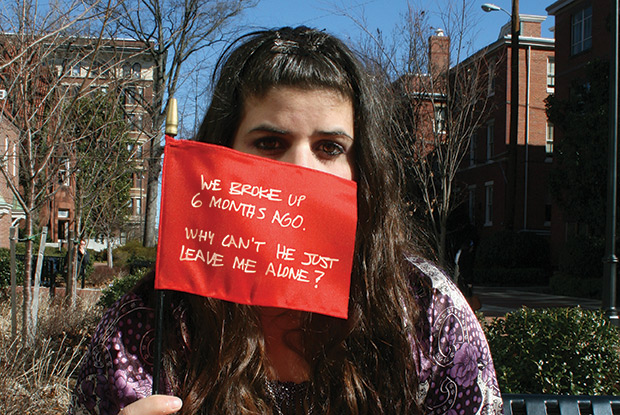 WE BROKE UP
6 MONTHS AGO.
WHY CAN'T HE JUST
LEAVE ME ALONE?